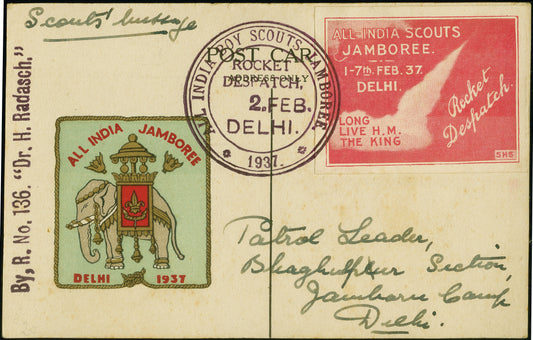 Scouts' message
By, R. No. 136. "Dr. H. Radasch,"
POST CARD
ADDRESS ONLY
ALL INDIA BOY SCOUTS JAMBOREE
ROCKET
DESPATCH,
2. FEB.
DELHI.
1937.
ALL-INDIA SCOUTS
JAMBOREE.
1-7th. FEB. 37.
DELHI.
Rocket
Despatch.
LONG
LIVE H.M.
THE KING
SHS
ALL INDIA JAMBOREE
DELHI 1937
Patrol Leader,
Bhaghulpur Section,
Jamboree Camp
Delhi.